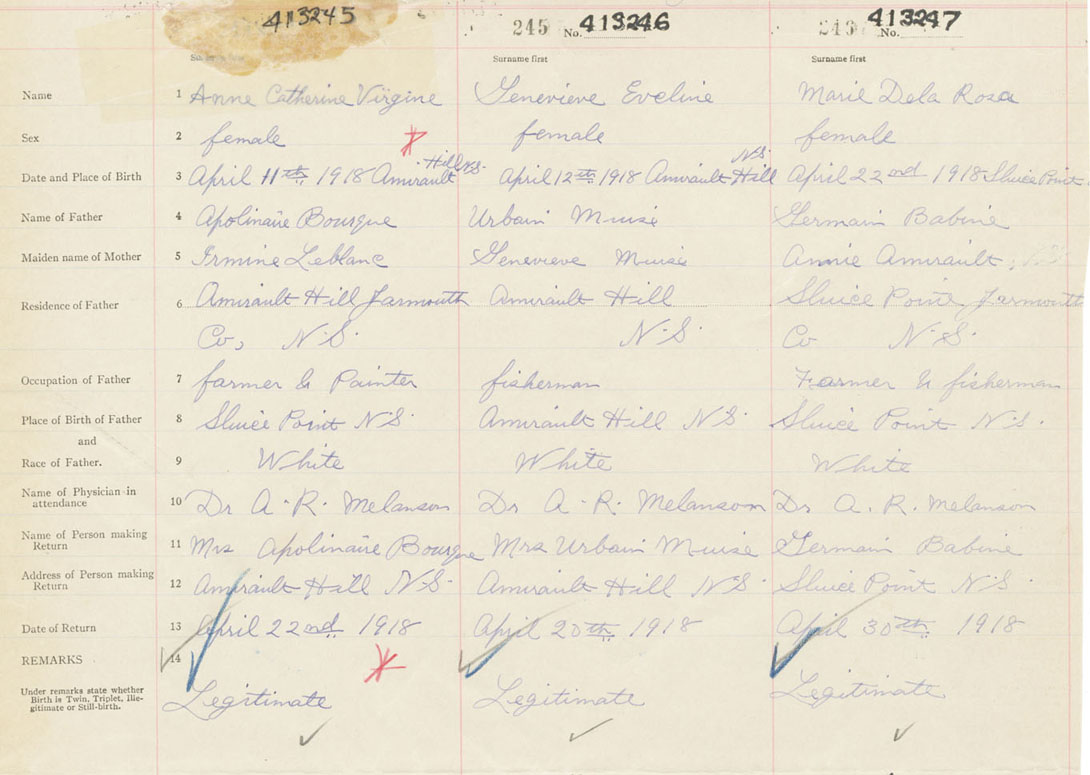 413245 245 No. 413246 No. 413247
Surname first Surname first
Name 1 Anne Catherine Virgine Genevieve Eveline Marie Dela Rosa
Sex 2 female female female
Hill N.S. N.S.
Date and Place of Birth 3 April 11th 1918 Amirault April 12th 1918 Amirault Hill April 22nd 1918 Sluice Point
Name of Father 4 Apolinaire Bourque Urbain Muise Germain Babine
Maiden name of Mother 5 Irmine Leblanc Genevieve Muise Annie Amirault
Residence of Father 6 Amirault Hill Yarmouth Amirault Hill Sluice Point Yarmouth
Co, N.S. N.S. Co N.S.
Occupation of Father 7 farmer & Painter fisherman Farmer & fisherman
Place of Birth of Father 8 Sluice Point N.S. Amirault Hill N.S. Sluice Point N.S.
and
Race of Father. 9 White White White
Name of Physician in
attendance 10 Dr A. R. Melanson Dr A. R. Melanson Dr A. R. Melanson
Name of Person making
Return 11 Mrs Apolinaire Bourque Mrs Urbain Muise Germain Babine
Address of Person making
Return 12 Amirault Hill N.S. Amirault Hill N.S. Sluice Point N.S.
Date of Return 13 April 22nd 1918 April 20th 1918 April 30th 1918
REMARKS 14
Under remarks state whether
Birth is Twin, Triplet, Ille-
gitimate or Still-birth.
Legitimate Legitimate Legitimate